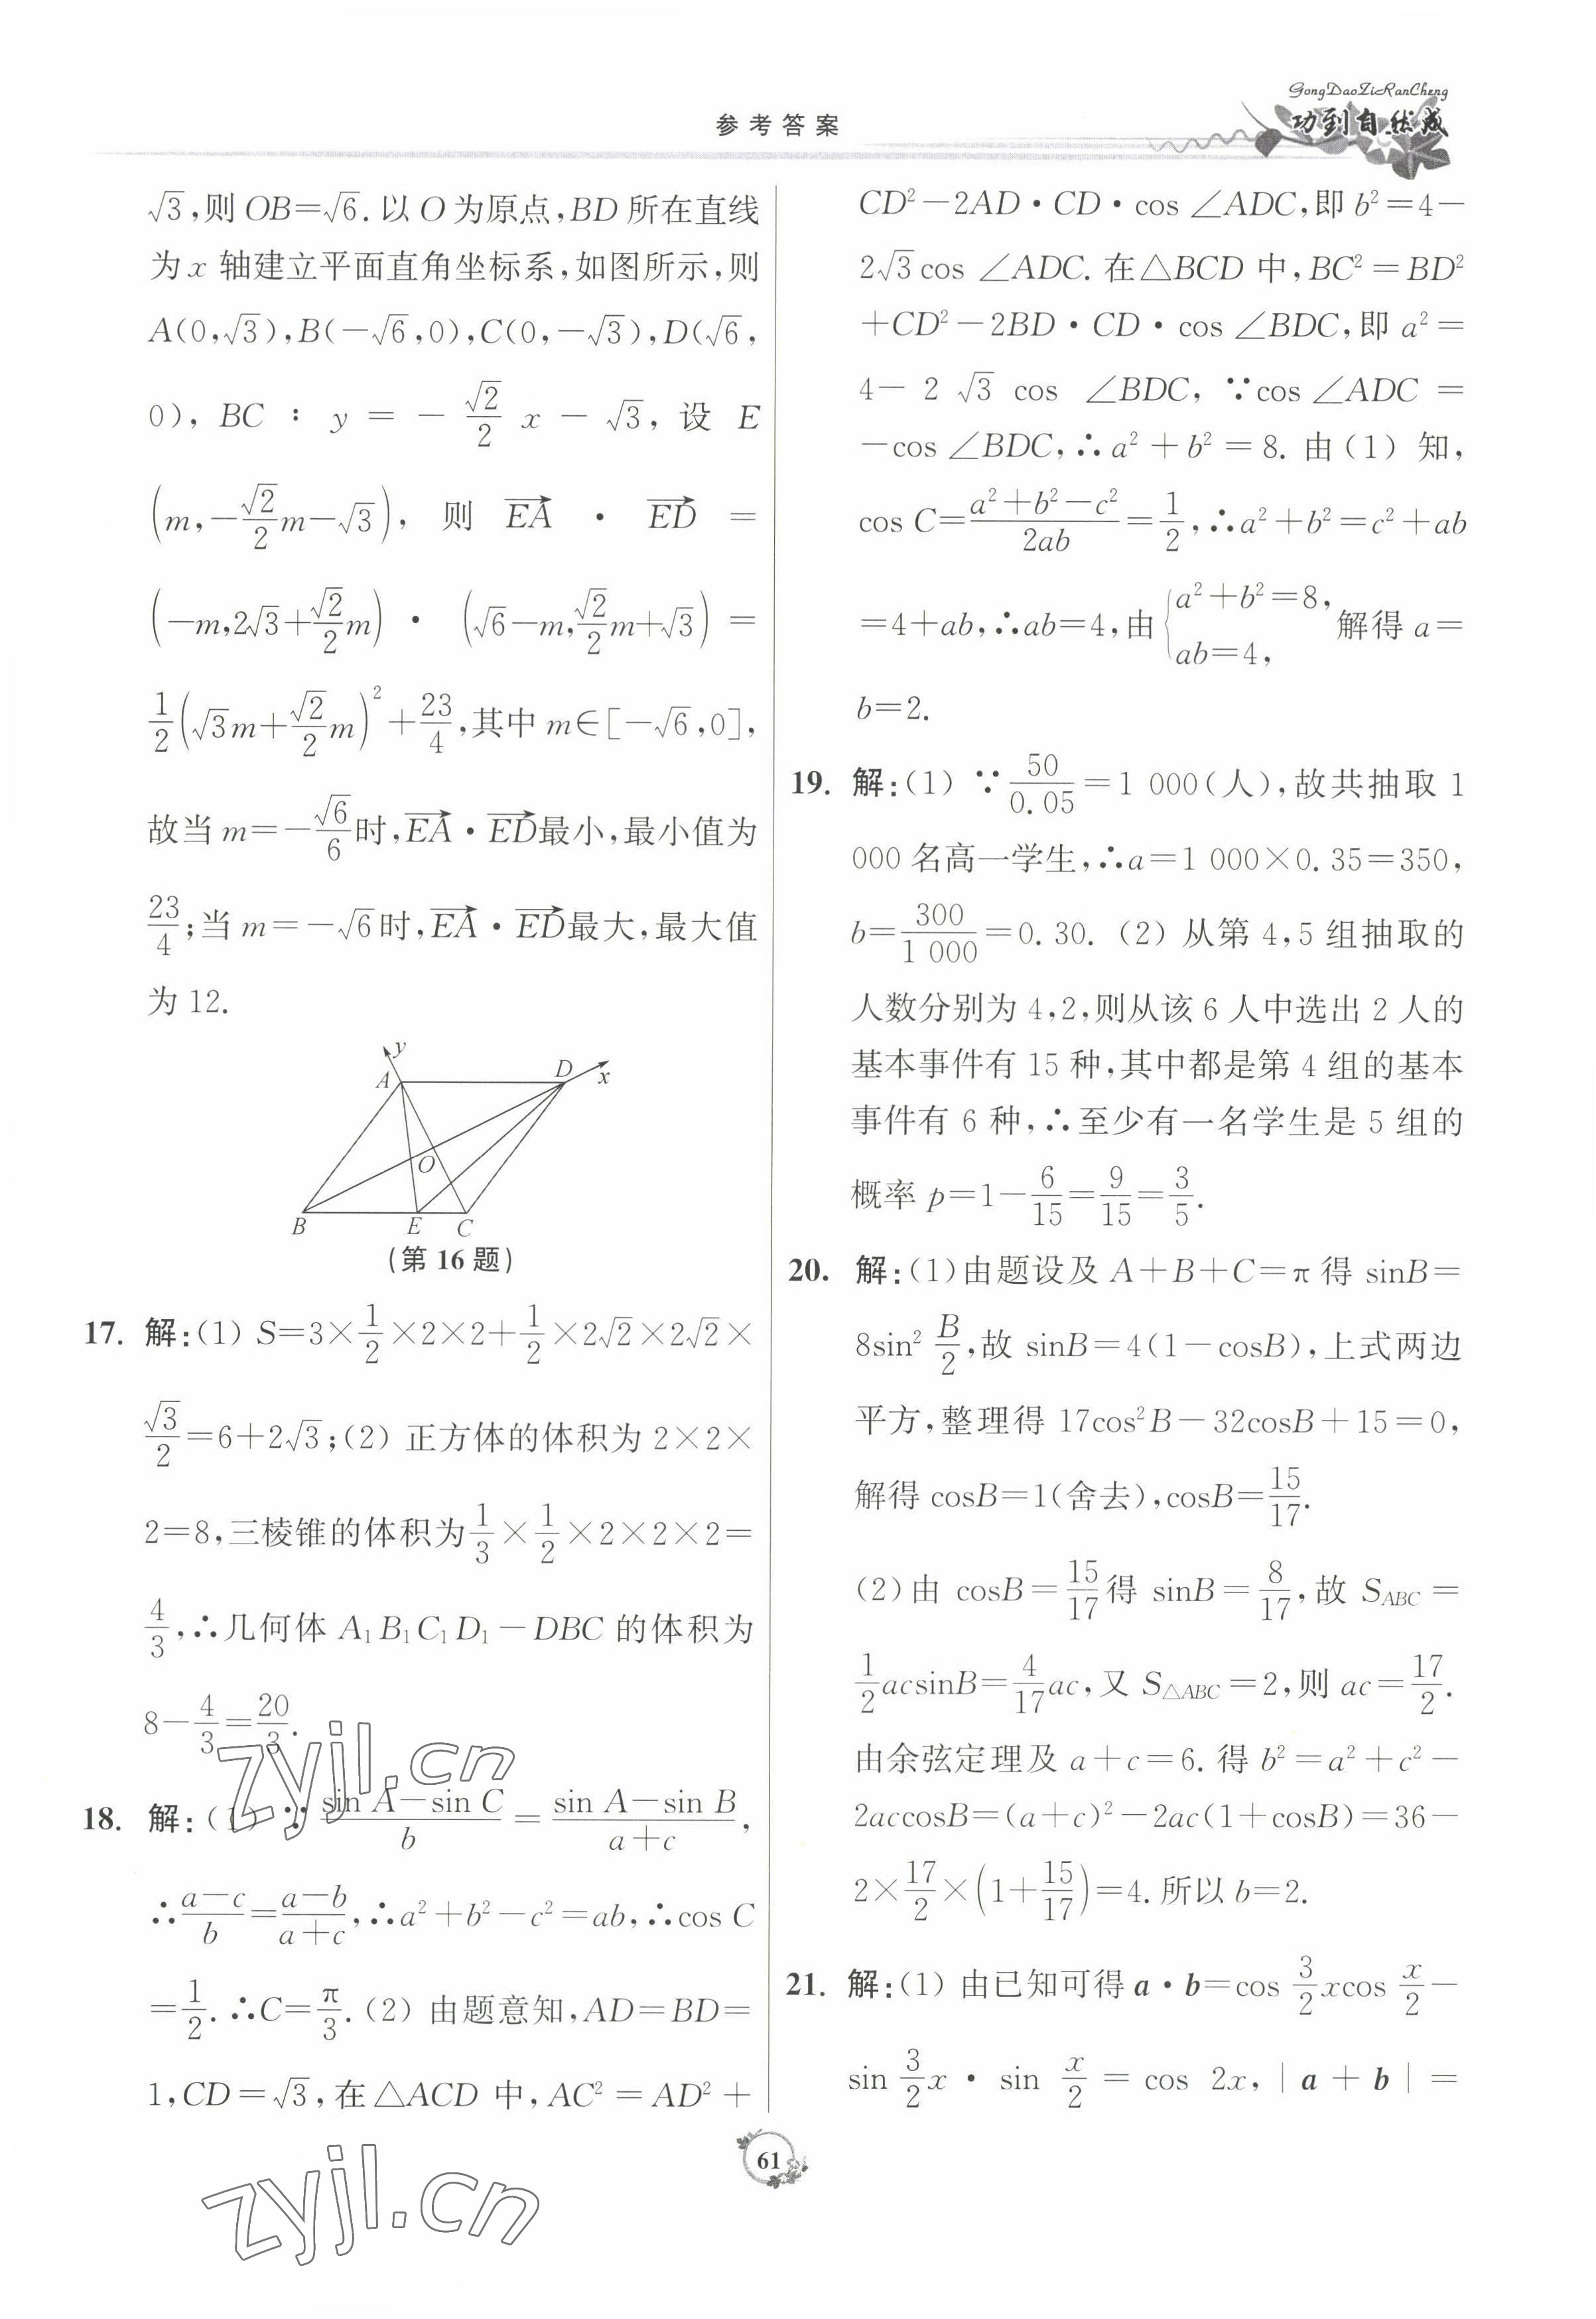 GongDaoZiRanCheng
功到自然成
参考答案
√3,则 OB=√6. 以 O 为原点,BD 所在直线
为 x 轴建立平面直角坐标系,如图所示,则
A(0,√3),B(-√6,0),C(0,-√3),D(√6,
0), BC : y = -√2/2 x - √3, 设 E
(m,-√2/2 m-√3), 则 EA→ · ED→ =
(-m,2√3+√2/2 m) · (√6-m,√2/2 m+√3) =
1/2(√3m+√2/2 m)²+23/4,其中 m∈[-√6,0],
故当 m=-√6/6时,EA→·ED→最小,最小值为
23/4;当 m=-√6时,EA→·ED→最大,最大值
为 12.
y
A
D
x
O
B
E
C
(第 16 题)
17. 解:(1) S=3×1/2×2×2+1/2×2√2×2√2×
√3/2=6+2√3;(2) 正方体的体积为 2×2×
2=8,三棱锥的体积为1/3×1/2×2×2×2=
4/3,∴几何体 A₁B₁C₁D₁-DBC 的体积为
8-4/3=20/3.
18. 解:(1) ∵ (sin A-sin C)/b = (sin A-sin B)/(a+c),
∴(a-c)/b=(a-b)/(a+c),∴a²+b²-c²=ab,∴cos C
=1/2. ∴C=π/3. (2) 由题意知,AD=BD=
1,CD=√3,在△ACD 中,AC²=AD²+
CD²-2AD·CD·cos ∠ADC,即 b²=4-
2√3cos ∠ADC. 在△BCD 中,BC²=BD²
+CD²-2BD·CD·cos ∠BDC,即 a²=
4- 2 √3 cos ∠BDC, ∵cos ∠ADC =
-cos ∠BDC,∴a²+b²=8. 由(1) 知,
cos C=(a²+b²-c²)/2ab=1/2,∴a²+b²=c²+ab
=4+ab,∴ab=4,由{a²+b²=8, ab=4, 解得 a=
b=2.
19. 解:(1) ∵50/0.05=1 000(人),故共抽取 1
000 名高一学生,∴a=1 000×0.35=350,
b=300/1 000=0.30. (2) 从第 4,5 组抽取的
人数分别为 4,2,则从该 6 人中选出 2 人的
基本事件有 15 种,其中都是第 4 组的基本
事件有 6 种,∴至少有一名学生是 5 组的
概率 p=1-6/15=9/15=3/5.
20. 解:(1)由题设及 A+B+C=π 得 sinB=
8sin² B/2,故 sinB=4(1-cosB),上式两边
平方,整理得 17cos²B-32cosB+15=0,
解得 cosB=1(舍去),cosB=15/17.
(2)由 cosB=15/17得 sinB=8/17,故 S_ABC=
1/2acsinB=4/17ac,又 S_△ABC=2,则 ac=17/2.
由余弦定理及 a+c=6. 得 b²=a²+c²-
2accosB=(a+c)²-2ac(1+cosB)=36-
2×17/2×(1+15/17)=4. 所以 b=2.
21. 解:(1) 由已知可得 a·b=cos 3/2 xcos x/2-
sin 3/2 x · sin x/2 = cos 2x, |a + b| =
61
zyjl.cn
zyjl.cn